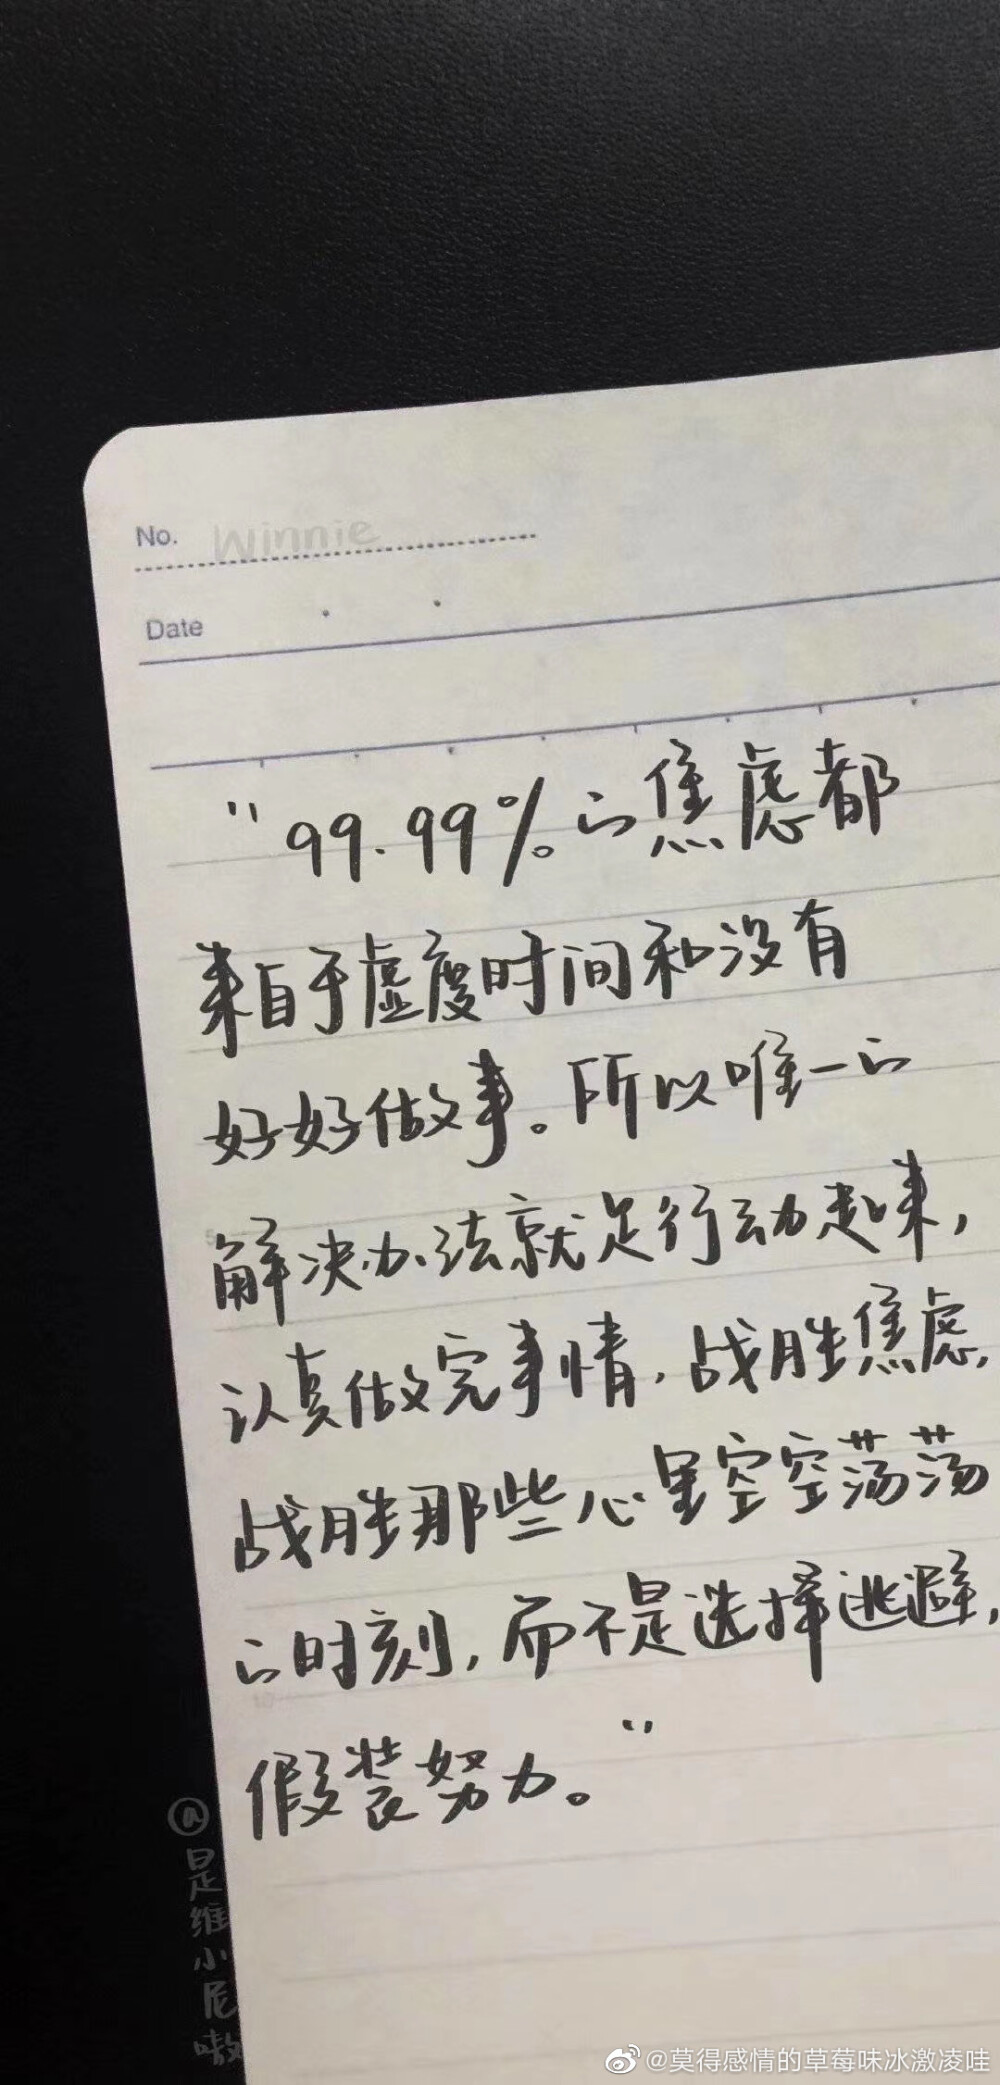 No. Winnie
Date
"99.99%的焦虑都
来自于虚度时间和没有
好好做事。所以唯一的
解决办法就是行动起来,
认真做完事情,战胜焦虑,
战胜那些心里空空荡荡
的时刻,而不是选择逃避,
假装努力。"
@是维小尼嗷
@莫得感情的草莓味冰激凌哇